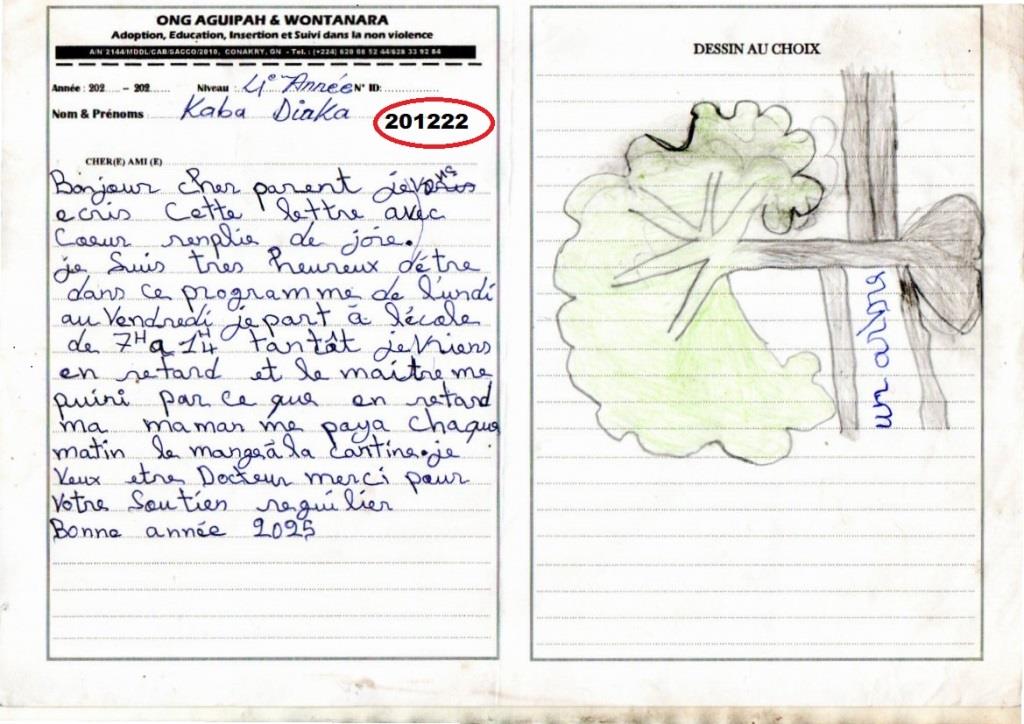 ONG AGUIPAH & WONTANARA
Adoption, Education, Insertion et Suivi dans la non violence
A/N 2144/MDDL/CAB/SACCO/2010, CONAKRY, GN - Tel. : (+224) 628 68 52 44/628 33 92 84
Année : 202 - 202 Niveau : 4e Année N° ID:
Nom & Prénoms Kaba Diaka
201222
CHER(E) AMI (E)
Bonjour cher parent je vous
ecris Cette lettre avec
Coeur remplie de joie.
je Suis tres heureux d'être
dans ce programme de l'undi
au Vendredi je part à l'école
de 7H a 14H tantât je viens
en retard et le maitre me
puini par ce que en retard
ma maman me paya chaque
matin le mange à la cantine. je
Veux etre Docteur merci pour
Votre Soutien regulier
Bonne année 2025
DESSIN AU CHOIX
un arbre